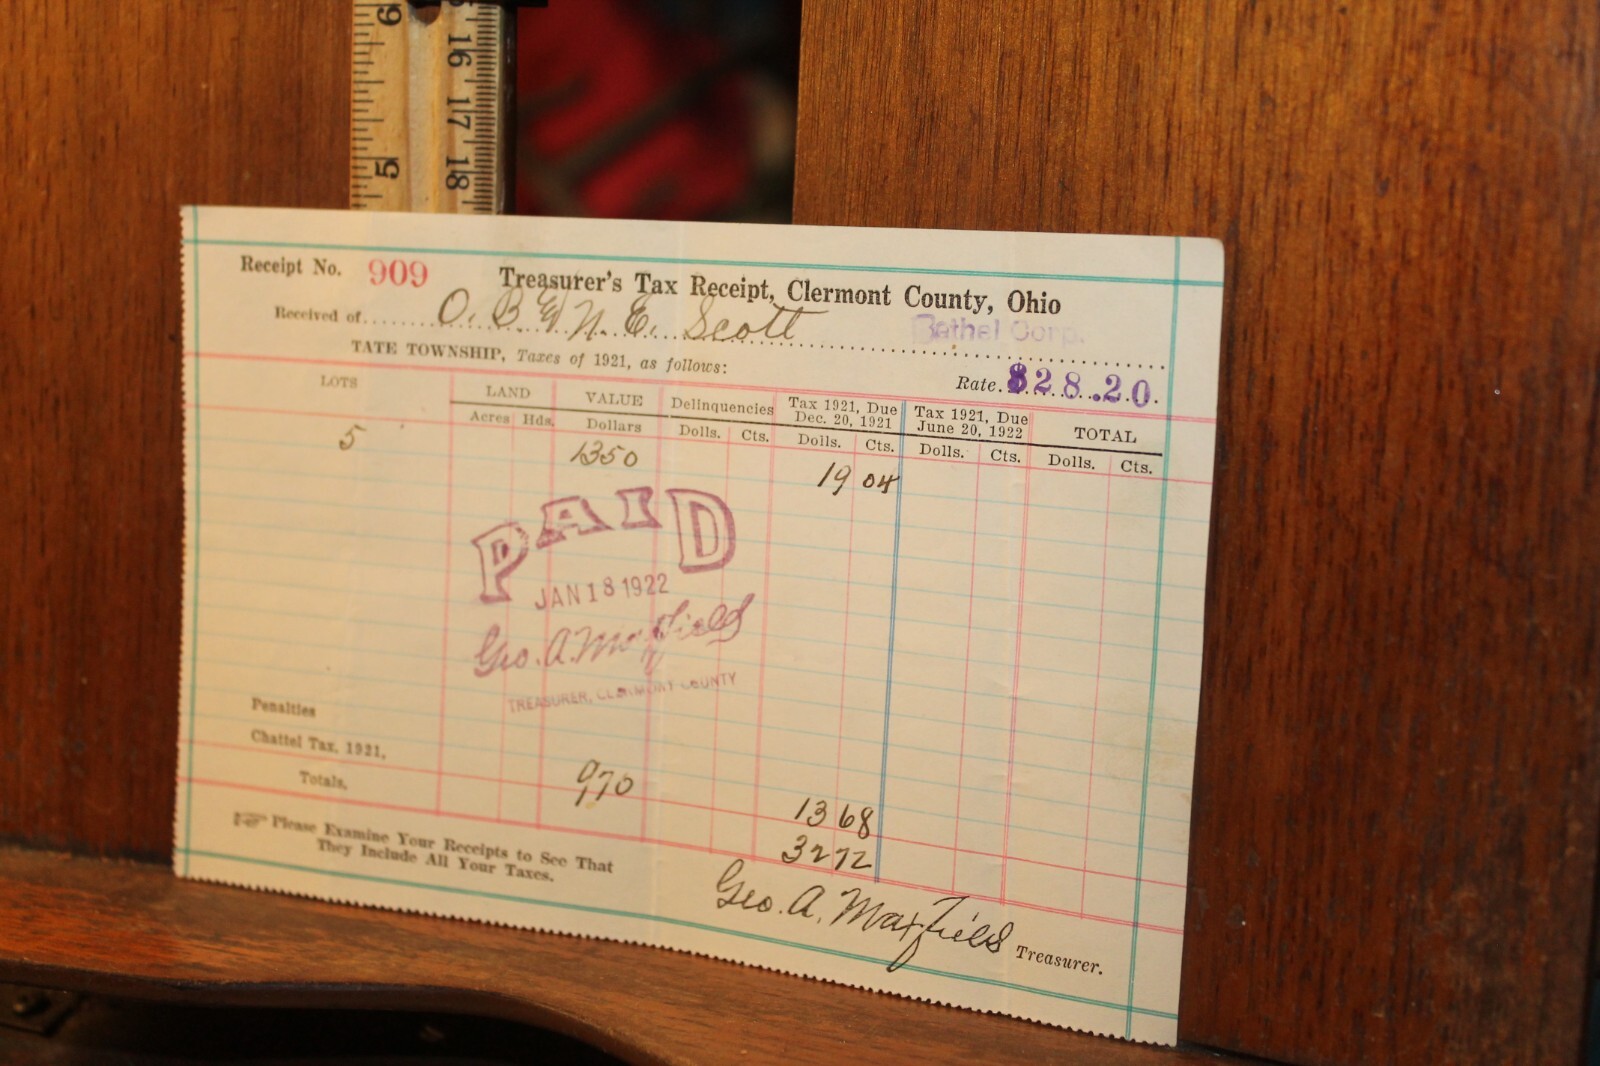 6 16 17
5 18
Receipt No. 909 Treasurer's Tax Receipt, Clermont County, Ohio
Received of O. B & N. E. Scott Bethel Corp.
TATE TOWNSHIP, Taxes of 1921, as follows:
Rate. $28.20.
LOTS LAND VALUE Delinquencies Tax 1921, Due Dec. 20, 1921 Tax 1921, Due June 20, 1922 TOTAL
Acres Hds. Dollars Dolls. Cts. Dolls. Cts. Dolls. Cts. Dolls. Cts.
5 1350 19 04
PAID
JAN 18 1922
Geo. A. Maxfield
TREASURER, CLERMONT COUNTY
Penalties
Chattel Tax, 1921, 970 13 68
Totals, 32 72
☞ Please Examine Your Receipts to See That
They Include All Your Taxes.
Geo. A. Maxfield Treasurer.